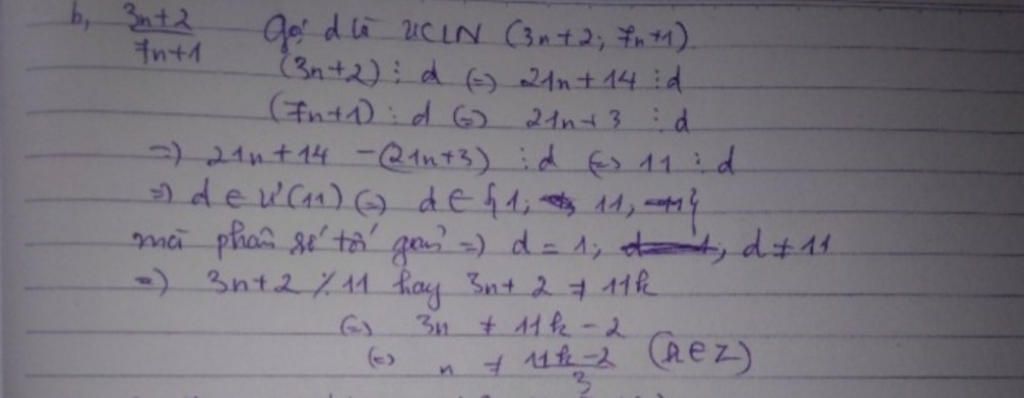 b, \frac{3n+2}{7n+1} Gọi d là ƯCLN (3n+2; 7n+1)
(3n+2) ⋮ d (=) 21n+14 ⋮ d
(7n+1) ⋮ d (=) 21n+3 ⋮ d
=) 21n+14 -(21n+3) ⋮ d (=) 11 ⋮ d
=) d ∈ Ư(11) (=) d ∈ {1; 11, }
mà phân số tối giản =) d = 1; d ≠ 11
=) 3n+2 ⋮̸ 11 hay 3n+2 ≠ 11k
(=) 3n ≠ 11k-2
(=) n ≠ \frac{11k-2}{3} (k∈Z)